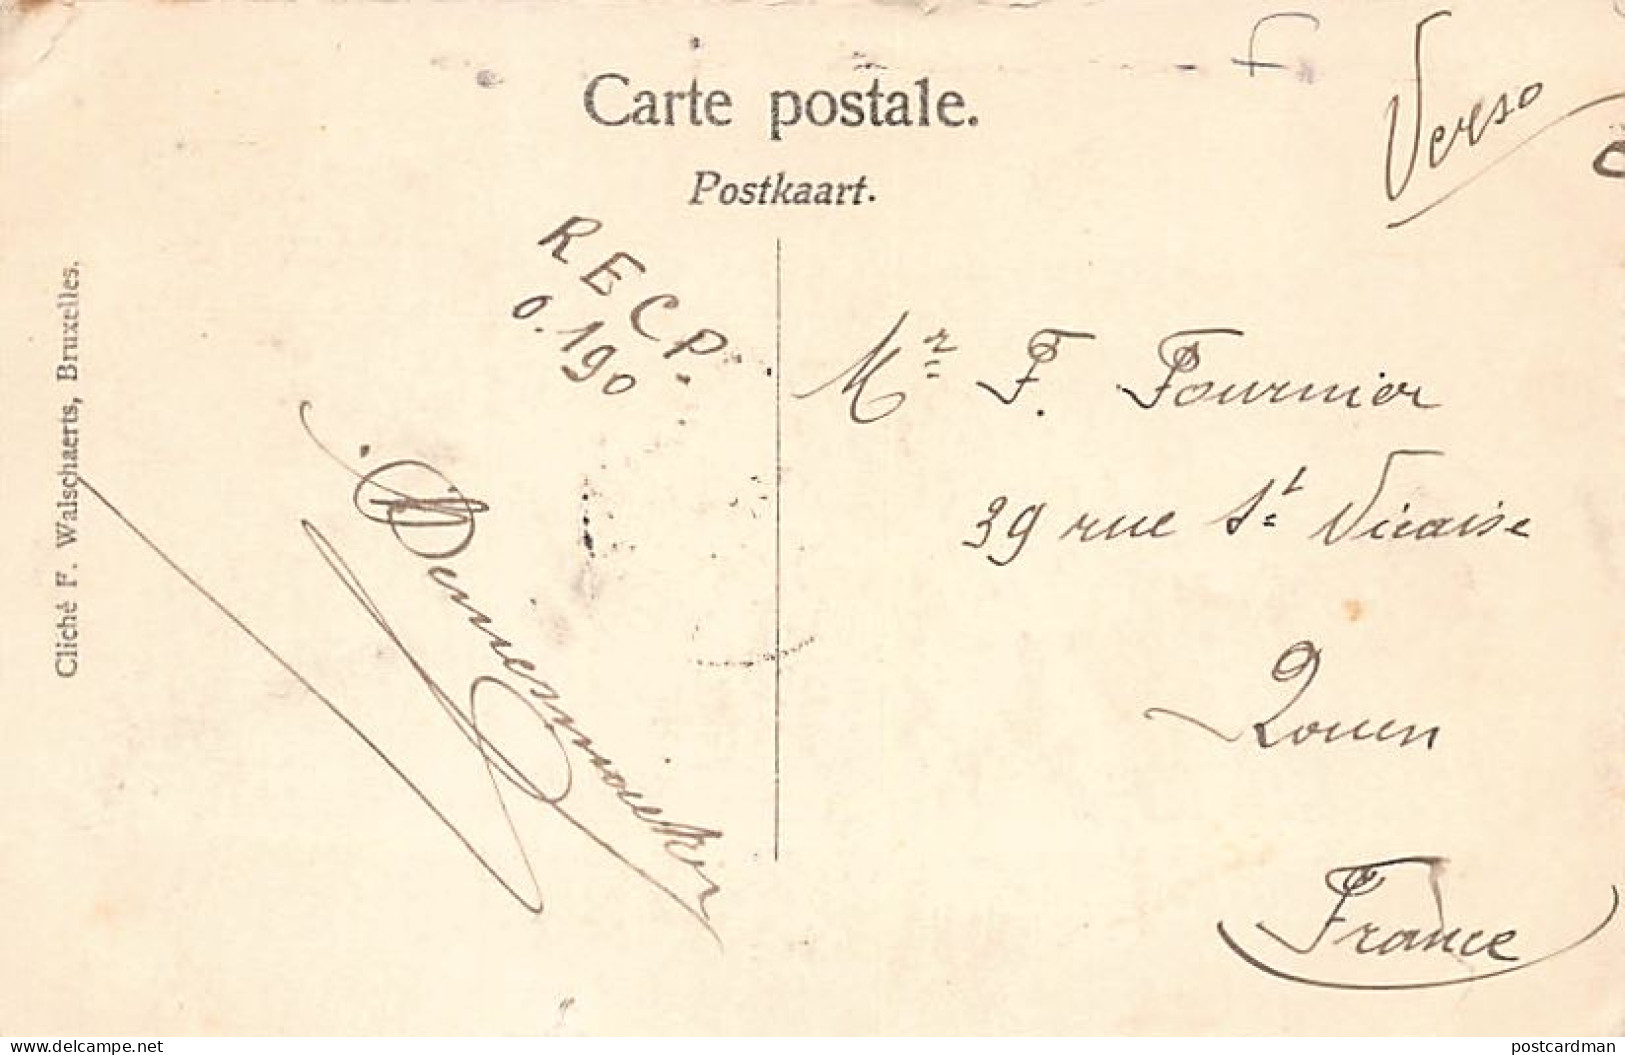 Carte postale.
Postkaart.
Verso
RECP.
0.190
Cliché F. Walschaerts, Bruxelles.
Mr F. Fournier
39 rue St Vicaise
Rouen
France
www.delcampe.net
postcardman